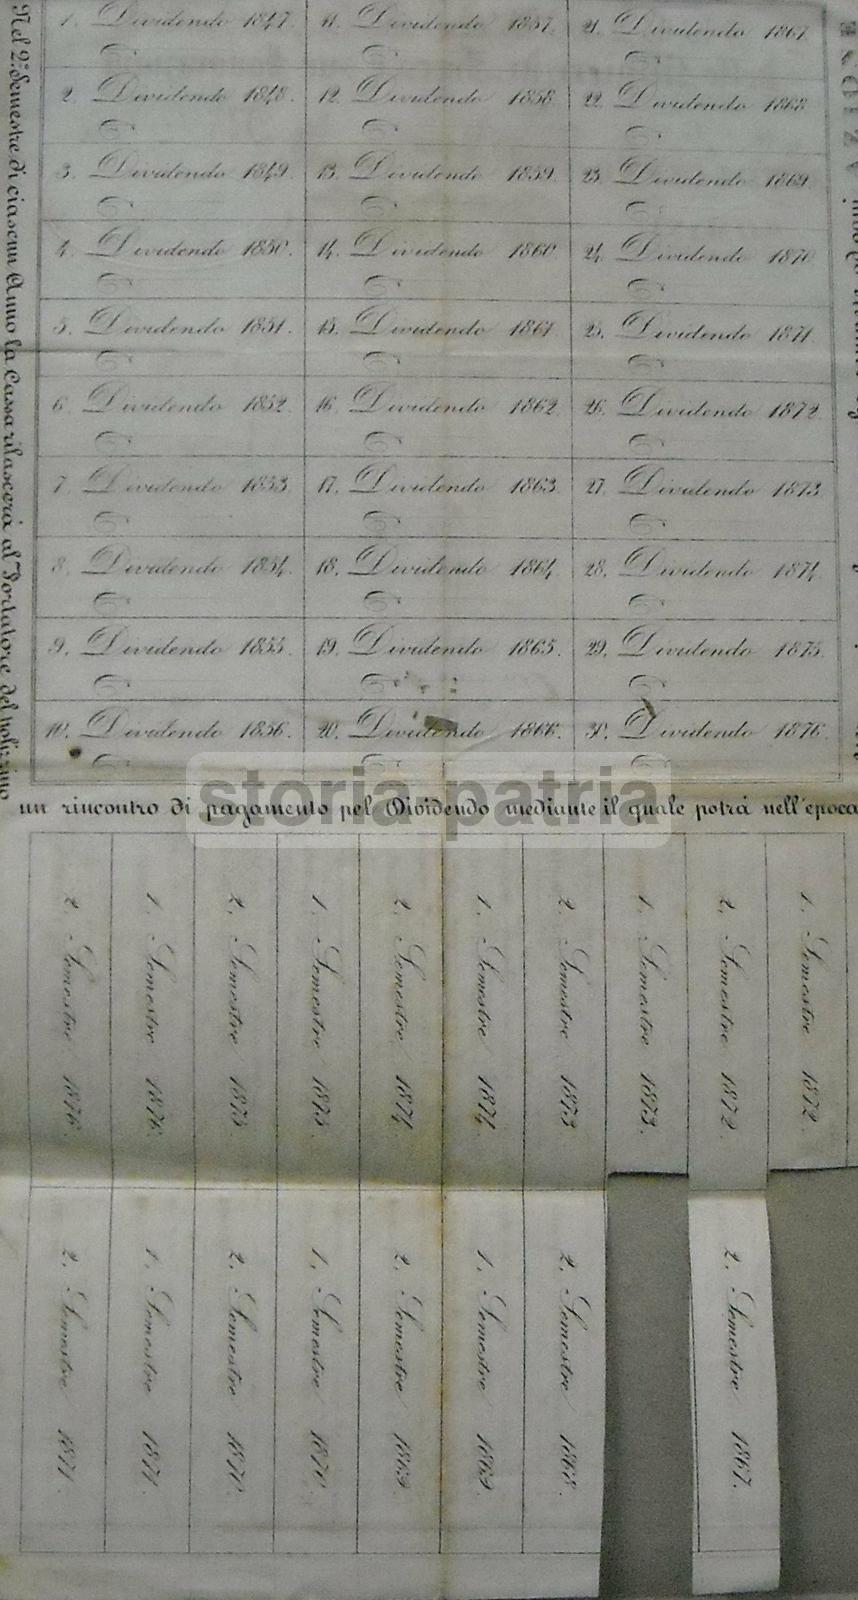 Nel 2º Semestre di ciascun Anno la Cassa rilascerà al Portatore del polizzino
1. Dividendo 1847. 11. Dividendo 1857. 21. Dividendo 1867.
2. Dividendo 1848. 12. Dividendo 1858. 22. Dividendo 1868.
3. Dividendo 1849. 13. Dividendo 1859. 23. Dividendo 1869.
4. Dividendo 1850. 14. Dividendo 1860. 24. Dividendo 1870.
5. Dividendo 1851. 15. Dividendo 1861. 25. Dividendo 1871.
6. Dividendo 1852. 16. Dividendo 1862. 26. Dividendo 1872.
7. Dividendo 1853. 17. Dividendo 1863. 27. Dividendo 1873.
8. Dividendo 1854. 18. Dividendo 1864. 28. Dividendo 1874.
9. Dividendo 1855. 19. Dividendo 1865. 29. Dividendo 1875.
10. Dividendo 1856. 20. Dividendo 1866. 30. Dividendo 1876.
storia patria
un rincontro di pagamento pel Dividendo mediante il quale potrà nell'epoca
1. Semestre 1872.
2. Semestre 1872.
1. Semestre 1873.
2. Semestre 1873.
1. Semestre 1874.
2. Semestre 1874.
1. Semestre 1875.
2. Semestre 1875.
1. Semestre 1876.
2. Semestre 1876.
2. Semestre 1867.
2. Semestre 1868.
1. Semestre 1869.
2. Semestre 1869.
1. Semestre 1870.
2. Semestre 1870.
1. Semestre 1871.
2. Semestre 1871.